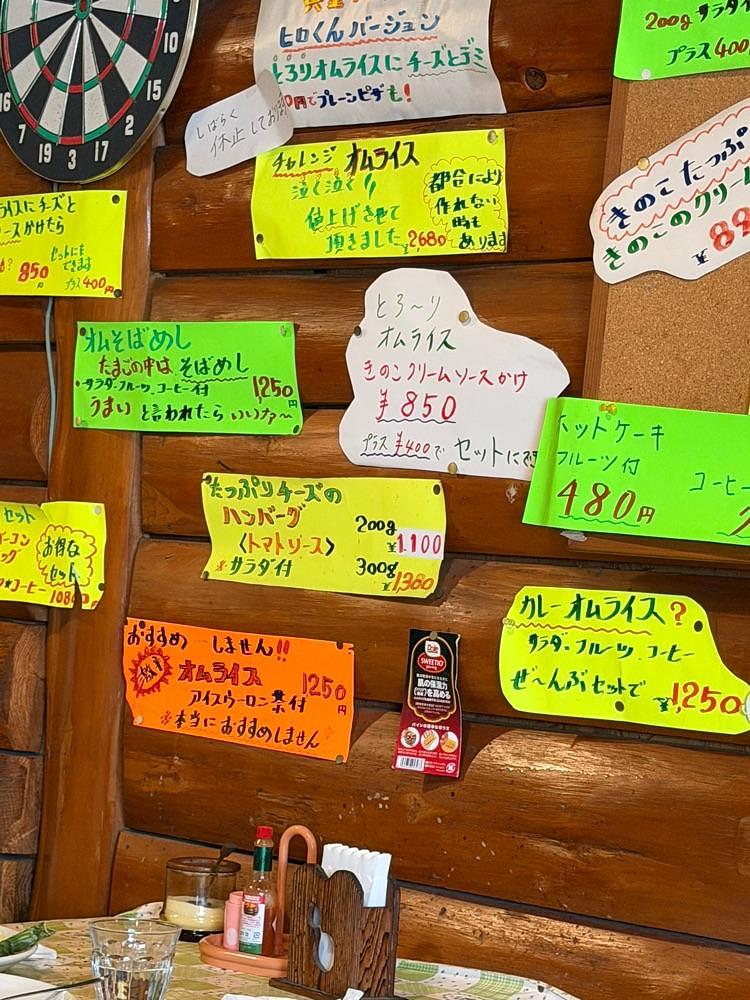 10
15
2
17
3
19
7
16
ヒロくんバージョン
とろりオムライスにチーズとデミ
円でプレーンピザも!
しばらく
休止しており
200g サラダ
プラス400
チャレンジ オムライス
泣く泣く!!
値上げさせて
頂きました ¥2,680
都合により
作れない
時も
あります
きのこたっぷ
きのこのクリーム
¥
ライスにチーズと
ースかけたら
850円
セットにも
できます
プラス400円
オムそばめし
たまごの中は そばめし
・サラダ・フルーツ・コーヒー付 1,250円
うまい と言われたら いいナァ〜
とろ〜り
オムライス
きのこクリームソースかけ
¥850
プラス ¥400で セットにでき
ホットケーキ
フルーツ付
480円
コーヒー
たっぷりチーズの
ハンバーグ
〈トマトソース〉
*サラダ付
200g
¥1,100
300g
¥1,380
セット
お得な
セット
コーヒー 1080円
おすすめ…しません!!
激辛 オムライス 1250円
アイスウーロン茶付
※本当におすすめしません
Dole
SWEETIO
カレーオムライス?
サラダ・フルーツ・コーヒー
ぜ〜んぶセットで ¥1,250